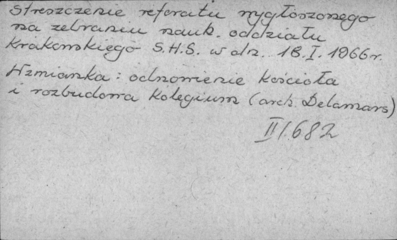 streszczenie referatu wygłoszonego
na zebraniu nauk. oddziału
krakowskiego S.H.S. w dn. 18.I.1966r.
Wzmianka: odnowienie kościoła
i rozbudowa Kolegium (arch. Delamars)
II/.682